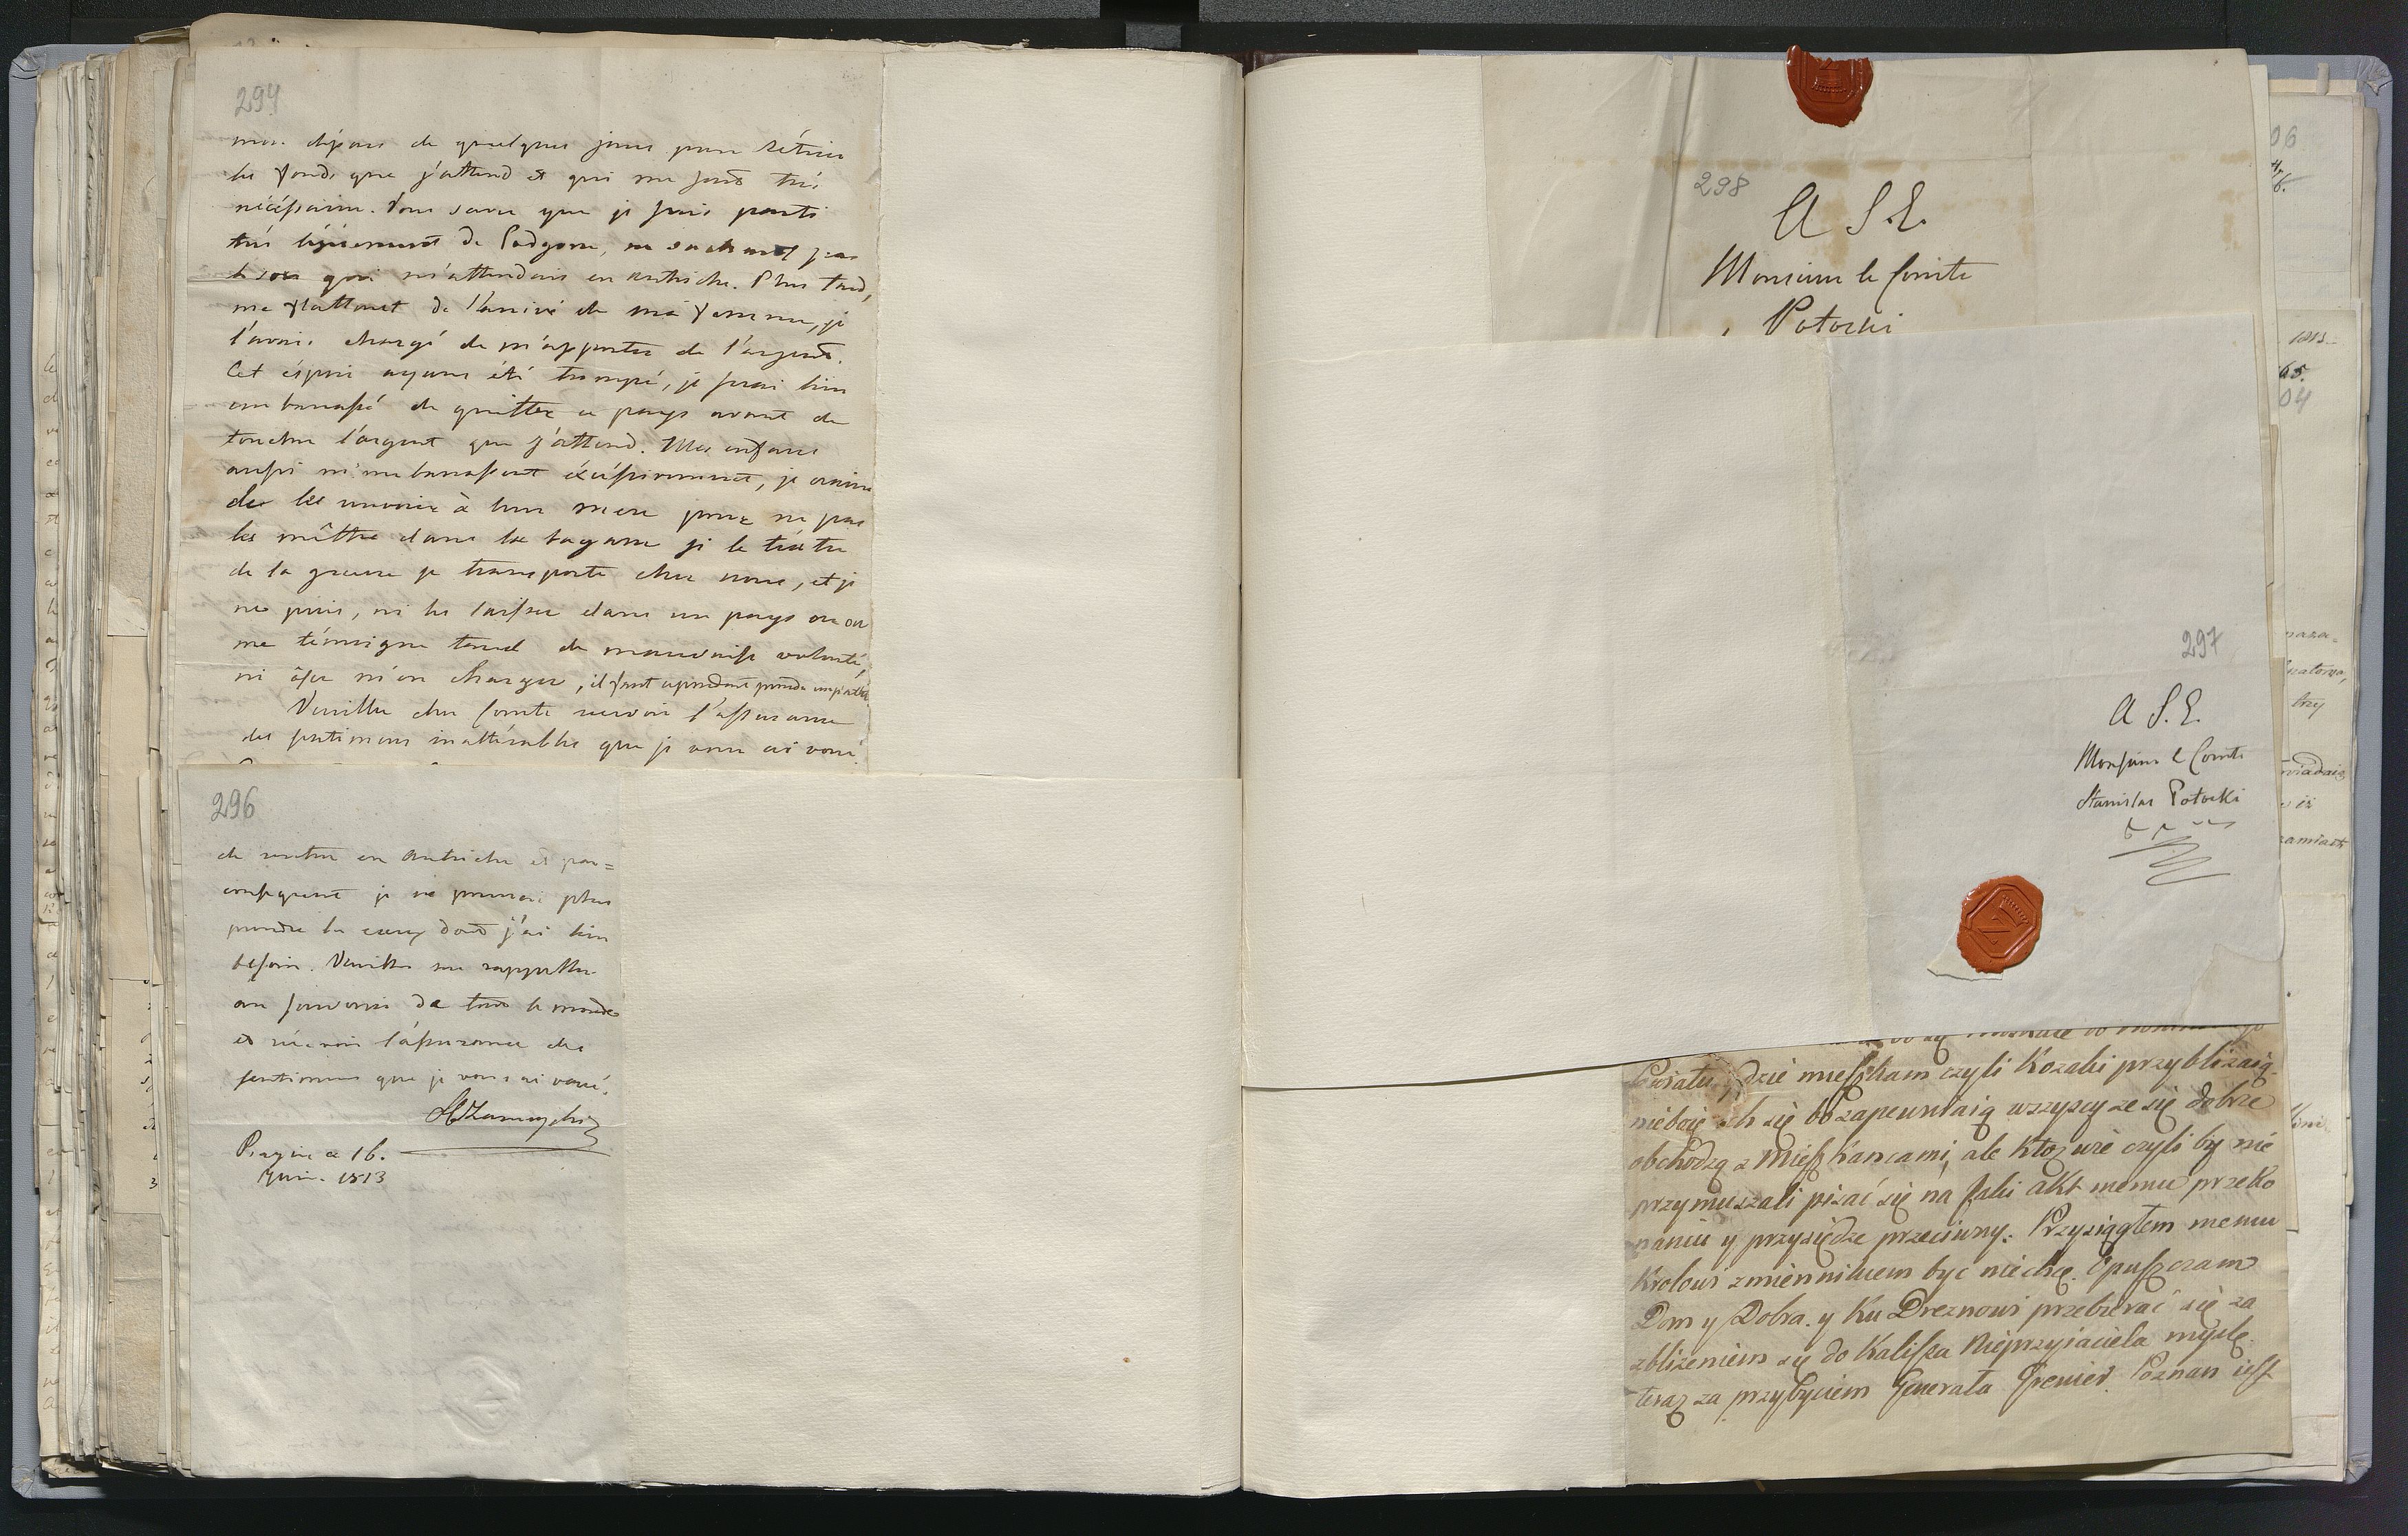 294
mon départ de quelques jours pour rétirer
les fonds que j'attend et qui me sont très
nécéssaires. Vous savez que je suis parti
très légérement de Podgorze, ne sachant pas
le sort qui m'attendais en Autriche. Plus tard,
me flattant de l'arrivé de ma femme, je
l'avois chargé de m'apporter de l'argent.
Cet éspoir ayant été trompé, je serai bien
embarassé de quitter ce pays avant de
toucher l'argent que j'attend. Mes enfans
aussi m'embarassent éxcéssivement, je crains
de les envoier à leur mere pour ne pas
les mêttre dans la bagarre si le téatre
de la guerre se transporte chez nous, et je
ne puis, ni les laisser dans un pays ou on
me témoigne tand de mauvaise volonté,
ni ôser m'en charger, il faut cependant prendre un parti.
Veuillez cher Comte recevoir l'assurance
des sentimens inaltérables que je vous ai voué.
296
de rentrer en Autriche et par=
conséquent je ne pourrai plus
prendre les eaux dont j'ai bien
besoin. Veuillez me rappeller
au souvenir de tout le monde
et récevoir l'assurance des
sentimens que je vous ai voué.
SZamoyski
Prague ce 16.
Juin. 1813
298
A S. E.
Monsieur le Comte
Potocki
297
A S. E.
Monsieur le Comte
Stanislas Potocki
Powiatu gdzie mieszkam czyli Kozaki przybliżaią
nieboię ich się bo zapewniaią wszyscy ze się dobrze
obchodzą z Mieszkancami, ale ktoż wie czyli by nie
przymuszali pisać się na jaki akt memu przeko
naniu y przysiędze przeciwny. Przysiągłem memu
Krolowi zmiennikiem być niechcę. Opuszczam
Dom y Dobra. y ku Dreznowi przebierać się za
zbliżeniem się do Kalisza Nieprzyiaciela myslę.
teraz za przybyciem Generała Grenier. Poznan iest